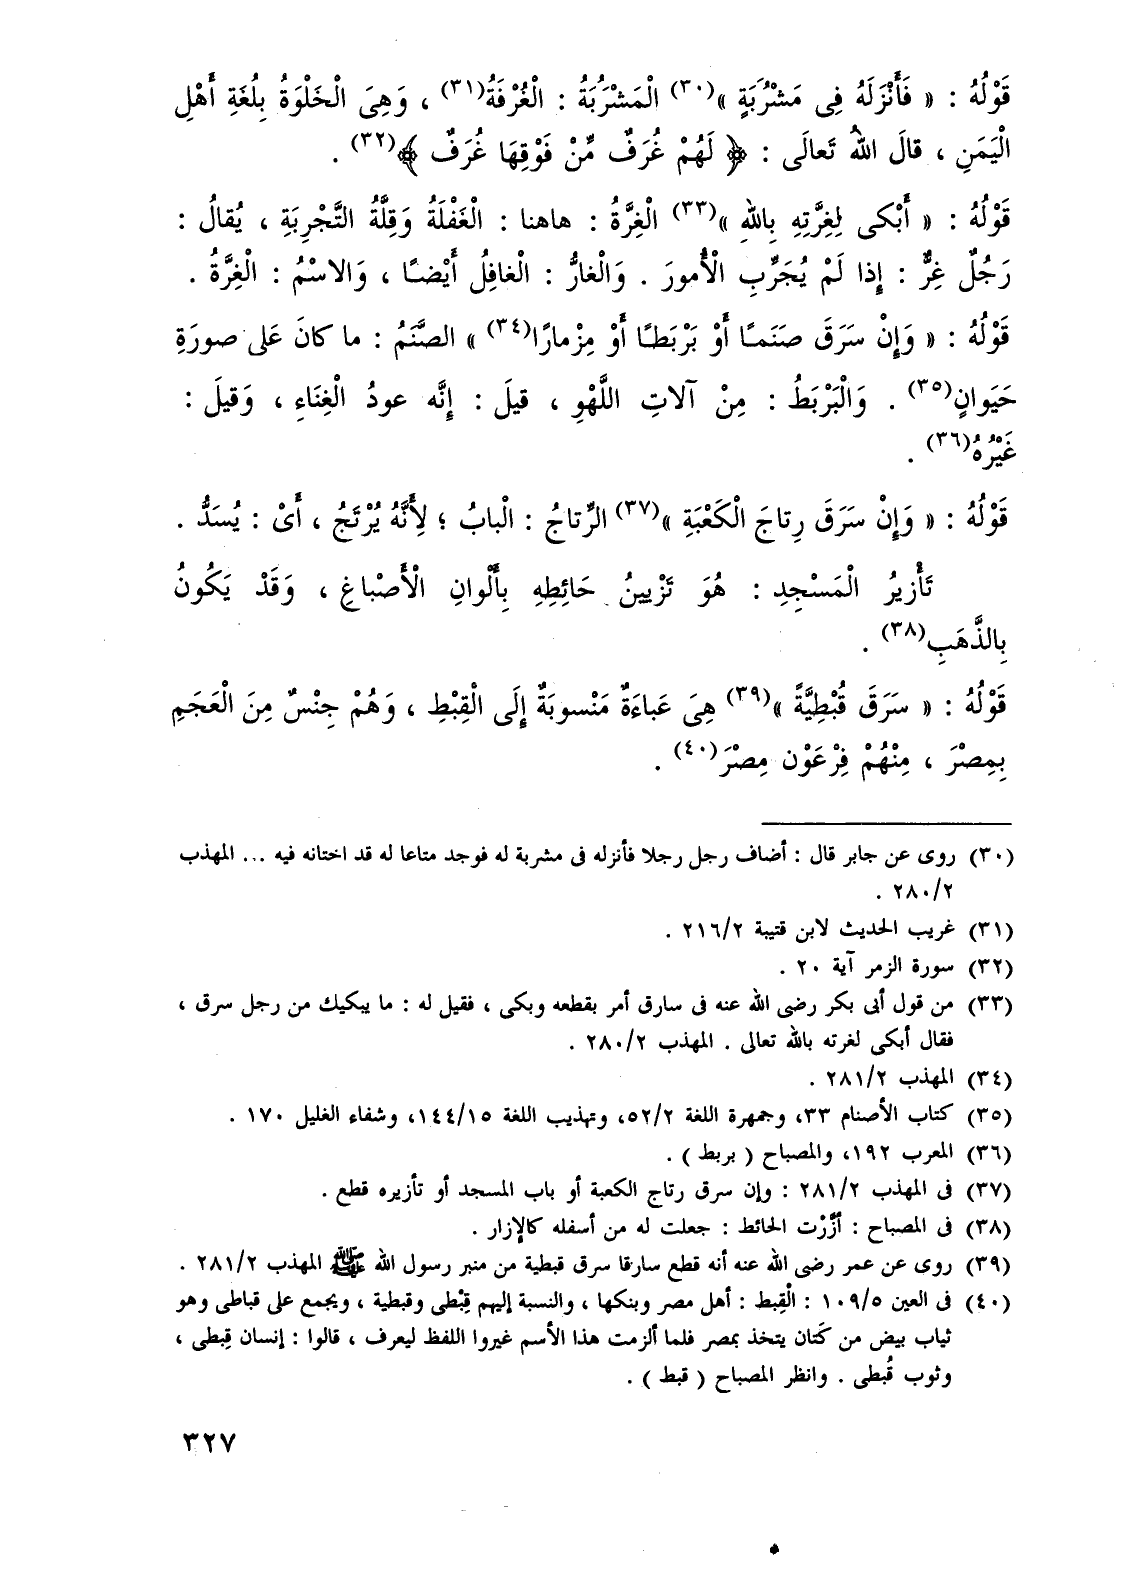 قَوْلُهُ : « فَأَنْزَلَهُ فِى مَشْرُبَةٍ »(٣٠) الْمَشْرَُبَةُ : الْغُرْفَةُ(٣١) ، وَهِىَ الْخَلْوَةُ بِلُغَةِ أَهْلِ
الْيَمَنِ ، قالَ اللهُ تَعالَى : ﴿ لَهُمْ غُرَفٌ مِّنْ فَوْقِهَا غُرَفٌ ﴾(٣٢) .
قَوْلُهُ : « أَبْكى لِغِرَّتِهِ بِاللهِ »(٣٣) الْغِرَّةُ : هاهنا : الْغَفْلَةُ وَقِلَّةُ التَّجْرِبَةِ ، يُقالُ :
رَجُلٌ غِرٌّ : إِذا لَمْ يُجَرِّبِ الْأُمورَ . وَالْغارُّ : الْغافِلُ أَيْضًا ، وَالاسْمُ : الْغِرَّةُ .
قَوْلُهُ : « وَإِنْ سَرَقَ صَنَمًا أَوْ بَرْبَطًا أَوْ مِزْمارًا(٣٤) » الصَّنَمُ : ما كانَ عَلى صورَةِ
حَيَوانٍ(٣٥) . وَالْبَرْبَطُ : مِنْ آلاتِ اللَّهْوِ ، قيلَ : إِنَّه عودُ الْغِنَاءِ ، وَقيلَ :
غَيْرُهُ(٣٦) .
قَوْلُهُ : « وَإِنْ سَرَقَ رِتاجَ الْكَعْبَةِ »(٣٧) الرِّتاجُ : الْبابُ ؛ لِأَنَّهُ يُرْتَجُ ، أَىْ : يُسَدُّ .
تَأْزيرُ الْمَسْجِدِ : هُوَ تَزْيينُ حَائِطِهِ بِأَلْوانِ الْأَصْباغِ ، وَقَدْ يَكُونُ
بِالذَّهَبِ(٣٨) .
قَوْلُهُ : « سَرَقَ قُبْطِيَّةً »(٣٩) هِىَ عَباءَةٌ مَنْسوبَةٌ إِلَى الْقِبْطِ ، وَهُمْ جِنْسٌ مِنَ الْعَجَمِ
بِمِصْرَ ، مِنْهُمْ فِرْعَوْن مِصْرَ(٤٠) .
(٣٠) روى عن جابر قال : أضاف رجل رجلا فأنزله فى مشربة له فوجد متاعا له قد اختانه فيه ... المهذب
٢٨٠/٢ .
(٣١) غريب الحديث لابن قتيبة ٢١٦/٢ .
(٣٢) سورة الزمر آية ٢٠ .
(٣٣) من قول أبى بكر رضى الله عنه فى سارق أمر بقطعه وبكى ، فقيل له : ما يبكيك من رجل سرق ،
فقال أبكى لغرته بالله تعالى . المهذب ٢٨٠/٢ .
(٣٤) المهذب ٢٨١/٢ .
(٣٥) كتاب الأصنام ٣٣، وجمهرة اللغة ٥٢/٢، وتهذيب اللغة ١٤٤/١٥، وشفاء الغليل ١٧٠ .
(٣٦) المعرب ١٩٢، والمصباح ( بربط ) .
(٣٧) فى المهذب ٢٨١/٢ : وإن سرق رتاج الكعبة أو باب المسجد أو تأزيره قطع .
(٣٨) فى المصباح : أزَّرْت الحائط : جعلت له من أسفله كالإزار .
(٣٩) روى عن عمر رضى الله عنه أنه قطع سارقا سرق قبطية من منبر رسول الله ﷺ المهذب ٢٨١/٢ .
(٤٠) فى العين ١٠٩/٥ : الْقِبط : أهل مصر وبنكها ، والنسبة إليهم قِبْطى وقبطية ، ويجمع على قباطى وهو
ثياب بيض من كَتان يتخذ بمصر فلما ألزمت هذا الأسم غيروا اللفظ ليعرف ، قالوا : إنسان قِبطى ،
وثوب قُبطى . وانظر المصباح ( قبط ) .
٣٢٧